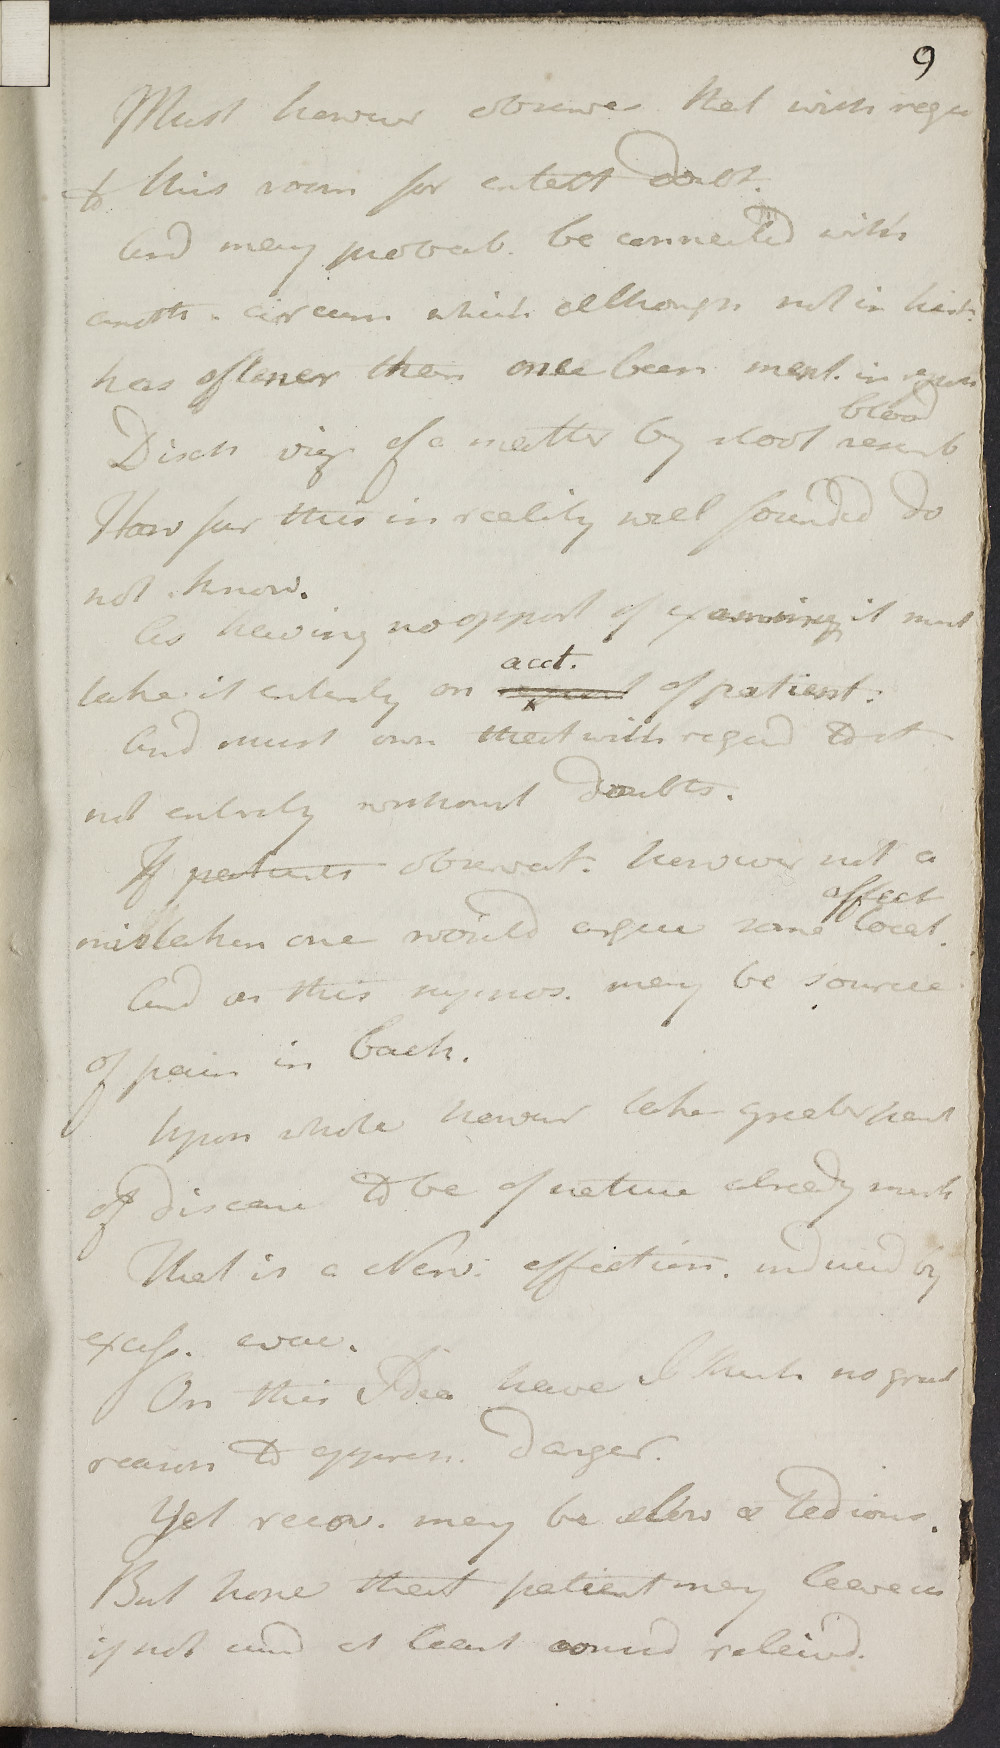 9
Must however observe that with regar
to this room for doubt.
And may probab. be connected with
anoth. circum which although not in hist.
has oftener than once been ment. in reports
blood
Disch viz of a matter by stool resemb
How far this in reality well founded do
not know.
As having no opport of examining it must
acct.
take it entirely on of patient.
And must own that with regard to it
not entirely without doubts.
If patients observat. however not a
affect
mistaken one would argue some local.
And as this may be source
of pain in back.
Upon whole however take greater part
of disease to be of nature already ment
That is a Nerv. affection. induced by
excess. evac.
On this Idea have I think no great
reason to appreh. danger.
Yet recov. may be slow & tedious.
But hope that patient may leave us
if not cured at least relievd.